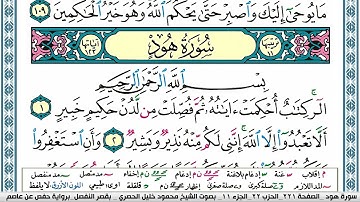 مَا يُوحَىٰٓ إِلَيْكَ وَٱصْبِرْ حَتَّىٰ يَحْكُمَ ٱللَّهُ وَهُوَ خَيْرُ ٱلْحَٰكِمِينَ ١٠٩
سُورَةُ هُودٍ
بِسْمِ ٱللَّهِ ٱلرَّحْمَٰنِ ٱلرَّحِيمِ
الٓر كِتَٰبٌ أُحْكِمَتْ ءَايَٰتُهُۥ ثُمَّ فُصِّلَتْ مِن لَّدُنْ حَكِيمٍ خَبِيرٍ ١
أَلَّا تَعْبُدُوٓا۟ إِلَّا ٱللَّهَ إِنَّنِى لَكُم مِّنْهُ نَذِيرٌ وَبَشِيرٌ ٢ وَأَنِ ٱسْتَغْفِرُوا۟
سورة هود - الصفحة ٢٢١ - الحزب ٢٢ - الجزء ١١ - بصوت الشيخ محمود خليل الحصري - بقصر المنفصل - برواية حفص عن عاصم